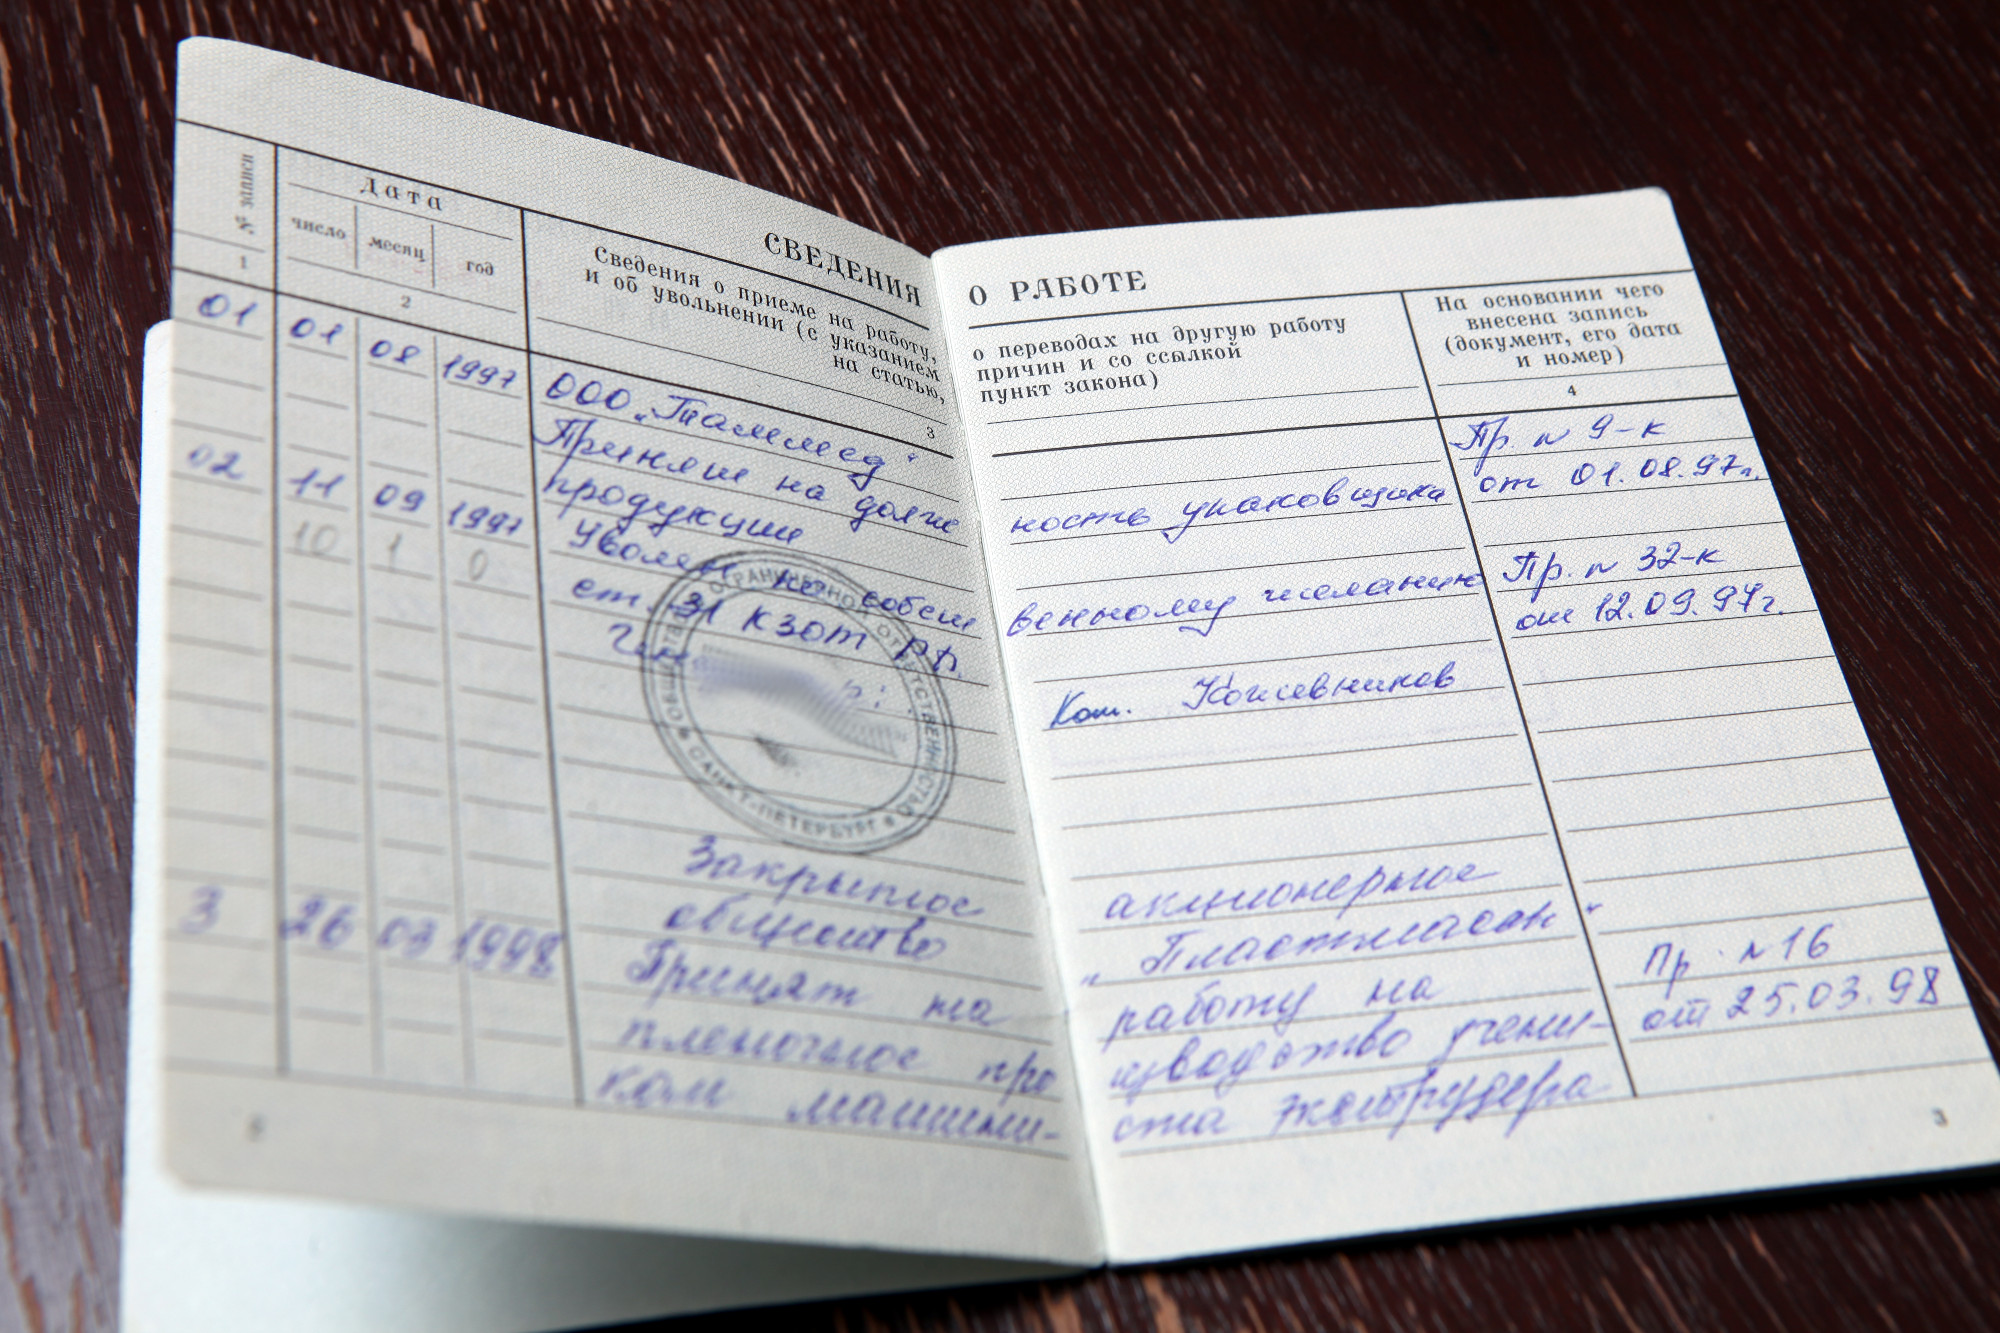 СВЕДЕНИЯ О РАБОТЕ
№ записи
Дата
число месяц год
Сведения о приеме на работу, о переводах на другую работу
и об увольнении (с указанием причин и со ссылкой
на статью, пункт закона)
На основании чего
внесена запись
(документ, его дата
и номер)
1 2 3 4
01 01 08 1997 ООО „Талмед" Пр. N 9-к
Приняты на должность упаковщика от 01.08.97г.
продукции
02 11 09 1997 Уволен по собственному желанию Пр. N 32-к
10 1 0 ст. 31 КЗОТ РФ. от 12.09.97г.
Ген. Кожевников
ОБЩЕСТВО С ОГРАНИЧЕННОЙ ОТВЕТСТВЕННОСТЬЮ
САНКТ-ПЕТЕРБУРГ
Закрытое акционерное
общество „Пластмассы"
3 26 03 1998 Принят на работу на Пр. N 16
пленочное производство учени- от 25.03.98
ком машини- ста экструдера
3